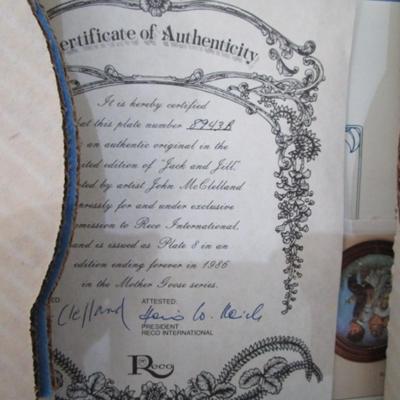 ertificate of Authenticity
It is hereby certified
at this plate number 8943R
an authentic original in the
ted edition of "Jack and Jill,"
ted by artist John McClelland
pressly for and under exclusive
mission to Reco International,
and is issued as Plate 8 in an
edition ending forever in 1986
in the Mother Goose series.
ED
ATTESTED:
Clelland
PRESIDENT
RECO INTERNATIONAL
Reco